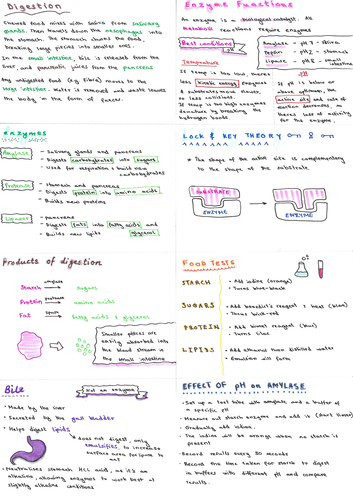 Digestion
Chewed food mixes with saliva from salivary
glands. Then travels down the oesophagus into
the stomach. The stomach churns the food,
breaking large pieces into smaller ones.
In the small intestine, bile is released from the
liver, and pancreatic juices from the pancreas
Any undigested food (e.g. fibre) moves to the
large intestine. Water is removed and waste leaves
the body in the form of faeces.
Enzyme Functions
An enzyme is a biological catalyst. All
metabolic reactions require enzymes
Best conditions
pH
Amylase - pH 7 - saliva
Pepsin - pH2 - stomach
Lipase - pH8 - small
intestine
Temperature
If temp is too low, there's
less kinetic energy. Enzymes
& substrates move slower,
so less collisions.
If temp is too high enzymes
denature by breaking the
hydrogen bonds
pH
If pH is below or
above optimum, the
active site and rate of
reaction decreases, so
theres less activity
for the enzyme.
Enzymes
Amylase
- Salivary glands and pancreas
- Digests carbohydrates into sugars
- Used for respiration & build new
carbohydrates
Protease
- Stomach and pancreas
- Digests protein into amino acids
- Builds new proteins
Lipase
- pancreas
- Digests fats into fatty acids and
glycerol
- Builds new lipids
Lock & KEY THEORY
* The shape of the active site is complementary
to the shape of the substrate
SUBSTRATE
ENZYME
ENZYME
Products of digestion
Starch amylase sugars
Protein protease amino acids
Fat lipase fatty acids & glycerol
Smaller pieces are
easily absorbed into
the blood stream in
the small intestine
FOOD TESTS
STARCH
• Add iodine (orange)
• Turns blue-black
SUGARS
• Add benedict's reagent & heat (blue)
• Turns brick-red
PROTEIN
• Add biuret reagent (blue)
• Turns lilac
LIPIDS
• Add ethanol then distilled water
• Emulsion will form
Bile
Not an enzyme
• Made by the liver
• Secreted by the gall bladder
• Helps digest lipids
does not digest, only
emulsifies, to increase
surface area for lipase to
act
• Neutralises stomach HCl acid, as it's an
alkaline, allowing enzymes to work best at
slightly alkaline conditions
EFFECT OF pH on AMYLASE
- Set up a test tube with amylase and a buffer of
a specific pH
- Gradually add iodine.
- The iodine will be orange when no starch is
present
- Record results every 30 seconds
- Record the time taken for starch to digest
in buffers with different pH and compare
results.